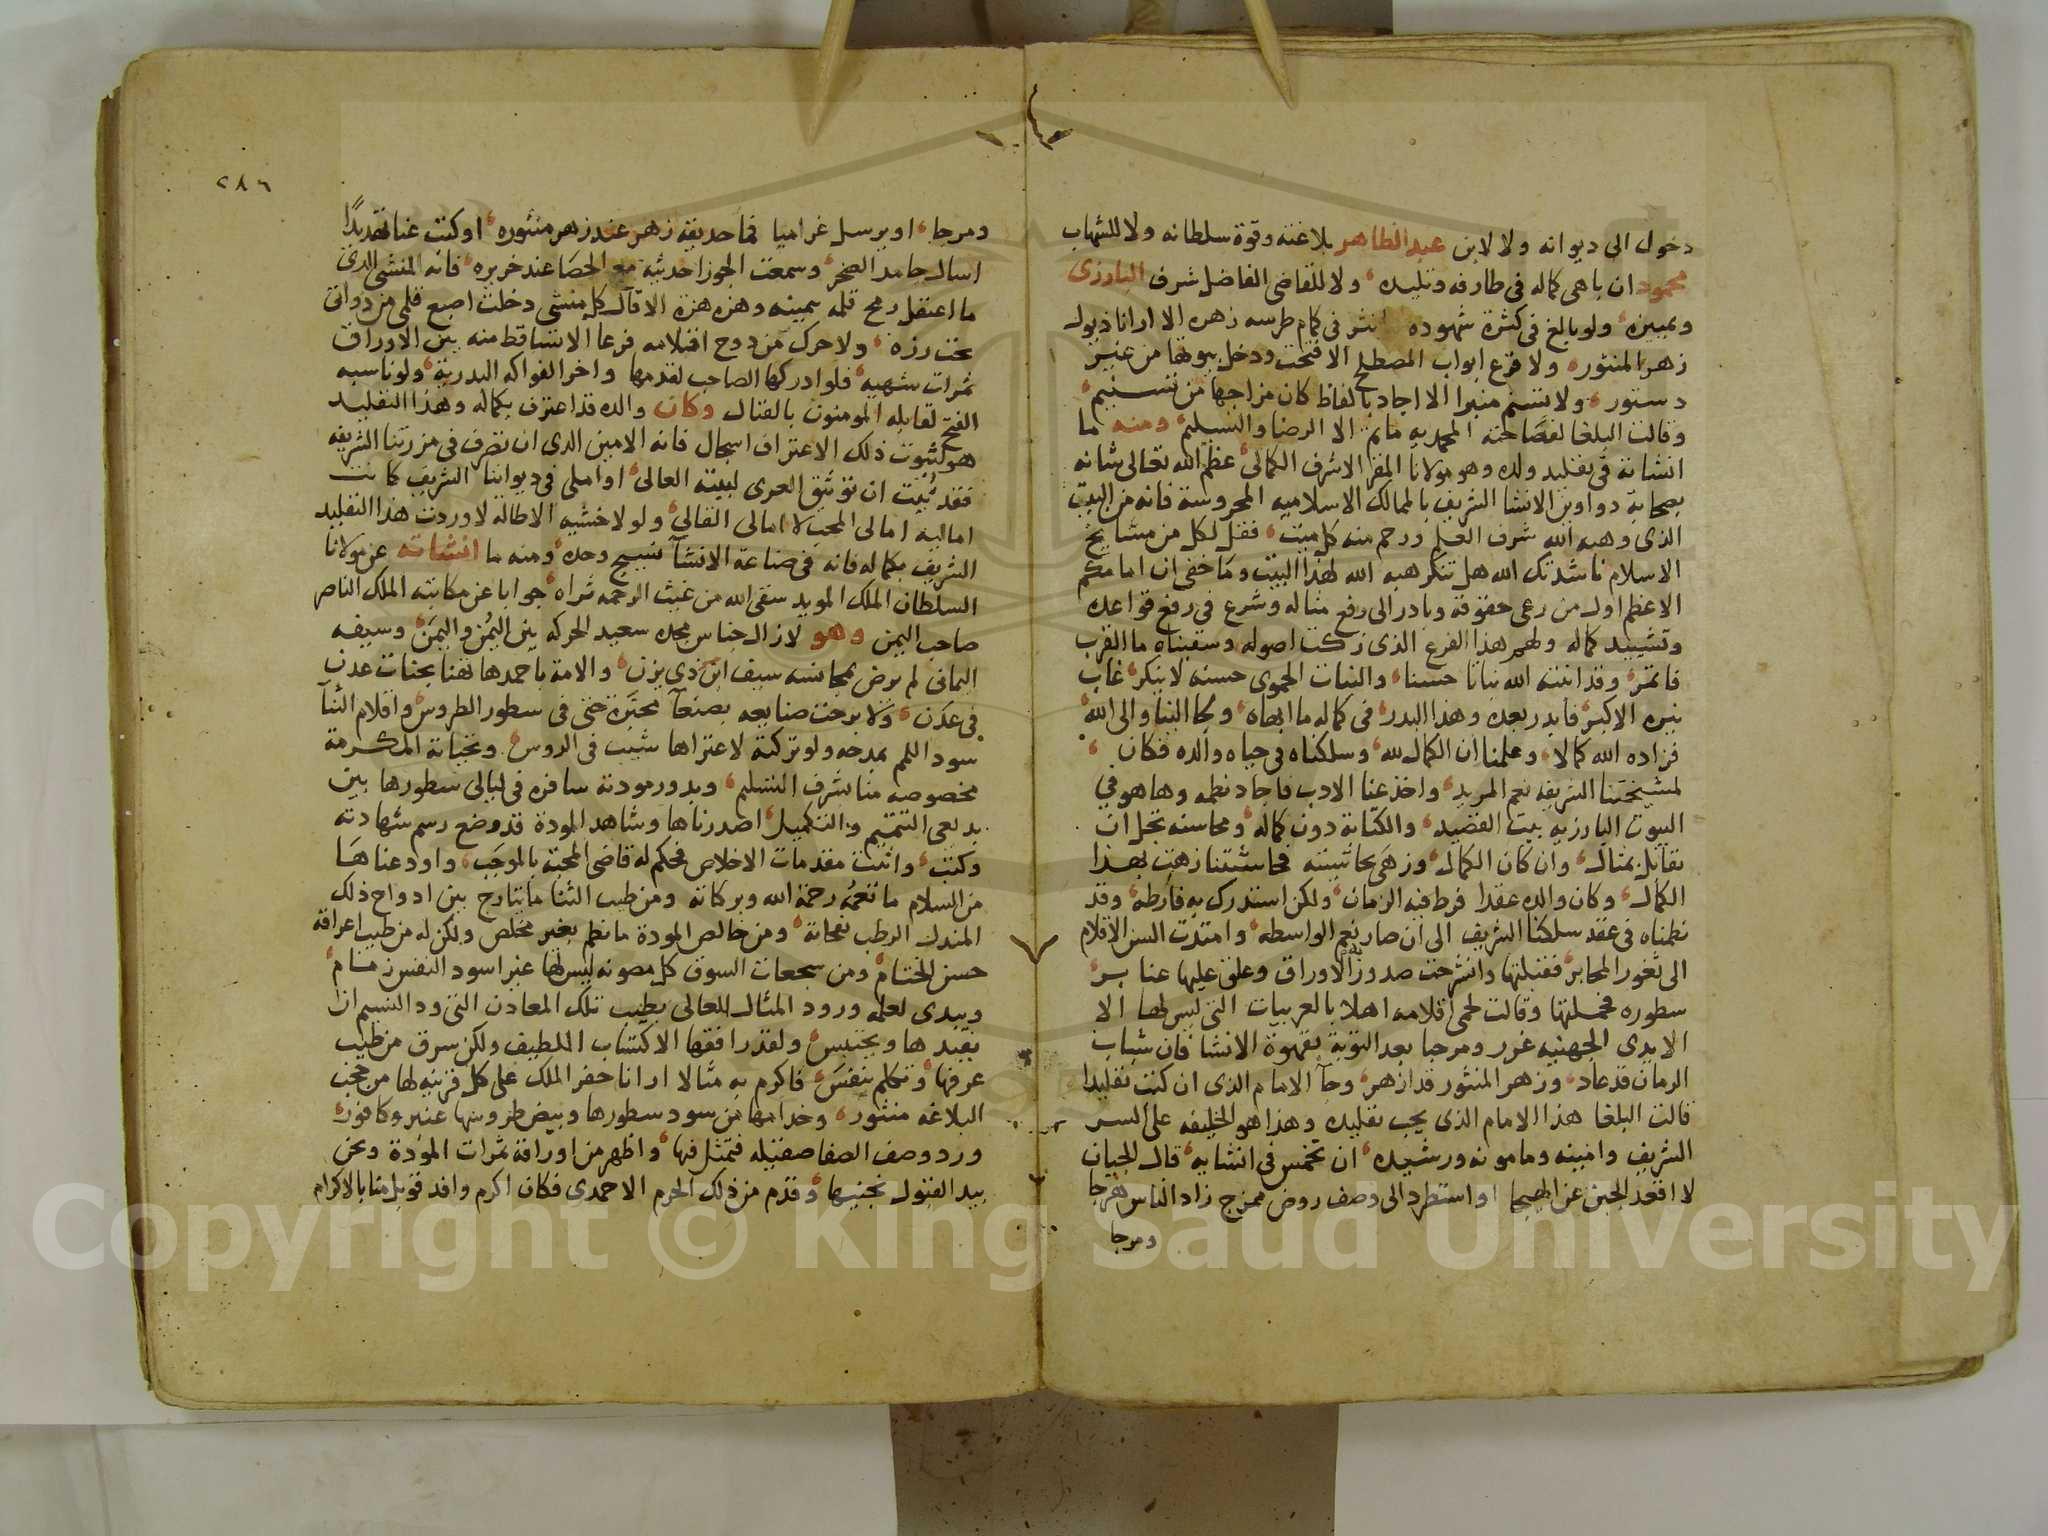 دخول الى ديوانه ولا لابن عبد الظاهر بلاغته وقوة سلطانه ولا للشهاب
محمود ان باهى كماله فى طارفه وتليده ولا للقاضى الفاضل شرف البارزى
وتمييزه ولو بالغ فى كثرة شهوده انثر فى كمام طرسه زهره الا ارانا ذبول
زهر المنثور ولا قرع ابواب المصطلح الا فتحت ودخل بيوتها من غير
دستور ولا تسنم منبرا الا اجاد بالفاظ كان مزاجها من تسنيم
وقالت البلغا لفصاحته المحمديه ماثم الا الرضا والتسليم ومنه ما
انشاته فى تقليد ولده وهو مولانا المقر الاشرف الكمالى عظم الله تعالى شانه
بصحابة دواوين الانشا الشريف بالممالك الاسلاميه المحروسة فانه من البيت
الذى وهبه الله شرف العلم ورحم منه كل ميت فقل لكل من مشايخ
الاسلام ناشدتك الله هل تنكر هبه الله لهذا البيت وما خفى ان امامكم
الاعظم اول من رعى حقوقه وبادر الى رفع مناله وشرع فى رفع قواعده
وتشييد كماله ولهم هذا الفرع الذى زكت اصوله وسقيناه ما القرب
فاثمر وقد انبته الله نباتا حسنا والنبات الحموى حسنه لا ينكر غاب
نيره الاكبر فابدر بعده وهذا البدر فى كماله ما ابهاه وجا الينا والى الله
فزاده الله كمالا وعلمنا ان الكمال لله وسلكناه فى حياه والده فكان
لمشيختنا الشريفه نعم المريد واخذ عنا الادب فاجاد نظمه وها هو فى
البيوت البارزيه بيت القصيد والكتابة دون كماله ومحاسنه تجل ان
تقابل بمثال وان كان الكمال وزهى بحاشيته فحاشيتنا زهت بهذا
الكمال وكان والده عقدا فرط فيه الزمان ولكن استدرك به فارطه وقد
نظمناه فى عقد سلكنا الشريف الى ان صار نعم الواسطه وامتدت السن الاقلام
الى ثغور المحابر فقبلتها وانشرحت صدور الاوراق وعلق عليها عنابر
سطوره فجملتها وقالت لحمى اقلامه اهلا بالعربيات التى ليس لها الا
الايدى الجهنيه غرر ومرحبا بعد التوبة بقهوة الانشا فان شباب
الزمان قد عاد وزهر المنثور قد ازهر وجآ الامام الذى ان كنت تقليدا
قالت البلغا هذا الامام الذى يجب تقليده وهذا هو الخليفه على السر
الشريف وامينه ومامونه ورشيده ان تحمس فى انشايه قال للجبان
لا اقعد الجبن عن الهيجا او استطرد الى وصف روض ممزج زاد الناس هرجا
ومرجا
٢٨٦
ومرجا او يرسل غراميا فما حديقه زهر عند زهر منثوره او كتب عنا تهديدا
اسال جامد الصخر وسمعت الجوزا حديثه مع الحصا عند خريره فانه المنشى الذى
ما اعتقل رمح قلمه بيمينه وهزه هزة الا قال كل منشى دخلت اصبع قلمى من دواتى
تحت رزه ولا حرك من دوح اقلامه فرعا الا تساقط منه بين الاوراق
ثمرات شهيه فلو ادركها الصاحب لقدمها واخر الفواكه البدرية ولو ناسبه
الفتح لقابله المومنون بالقتال وكان والده قد اعترف بكماله وهذا التقليد
هو لثبوت ذلك الاعتراف اسجال فانه الامين الذى ان تصرف فى مزرتنا الشريفه
فقد ثبت ان توثيق العرى لبيته العالى او املى فى ديواننا الشريف كانت
اماليه امالى المحب لا امالى القالى ولولا خشيه الاطاله لاوردت هذا التقليد
الشريف بكماله فانه فى صناعة الانشآ نسيج وحده ومنه ما انشاته عن مولانا
السلطان الملك المويد سقى الله من غيث الرحمه ثراه جوابا عن مكاتبة الملك الناصر
صاحب اليمن وهو لازال جناس مجده سعيد الحركه بين اليُمن واليمَن وسيفه
اليمانى لم يرض بمجانسه سيف ابن ذى يزن والامة باحمدها تهنا بجنات عدن
فى عدن ولا برحت صنايعه بصنعآ محبرة حتى فى سطور الطروس واقلام الثنآ
سود اللمم بمدحه ولو تركته لاعتراها شيب فى الروس وتحياته المكرمة
مخصوصه منا بشرف التسليم وبدور مودته سافره فى ليالى سطورها بين
بديعى التتميم والتكميل اصدرناها وشاهد المودة قد وضع رسم شهادته
وكتب واثبت مقدمات الاخلاص فحكم له قاضى المحبة بالموجب واودعناها
من السلام ما تعمه رحمة الله وبركاته ومن طيب الثنا ما يتارج بين ادواح ذلك
المندل الرطب نفحاته ومن خالص المودة ما نظم بغير مخلص ولكن له من طيب اعراقه
حسن الختام ومن سجعات السوق كل مصونه ليس لها غير اسود النفس زمام
ويبدى لعلمه ورود المثال العالى بطيب تلك المعادن التى ود النسيم ان
يقيدها ويحتبس ولقد رافقها الاكتساب اللطيف ولكن سرق من طيب
عرفها وتكلم بنفس فاكرم به مثالا ارانا حفر الملك على كل قرينه لها من حجب
البلاغه منثور وخدامها من سود سطورها وبيض طروسها عنبر وكافور
ورد وصف الصفا صقيله فتمثل فيها واظهر من اوراقه ثمرات المودة ونحن
بيد القبول نجنيها وقدم من ذلك الحرم الاحمدى فكان اكرم وافد قوبل منا بالاكرام